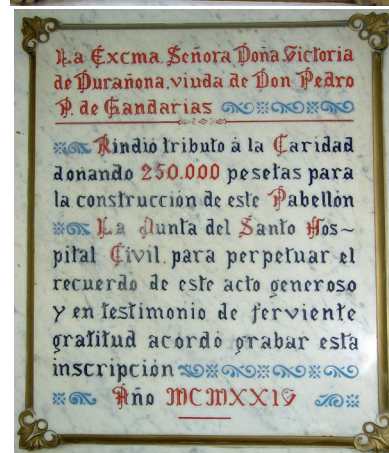 La Excma. Señora Doña Victoria
de Durañona, viuda de Don Pedro
P. de Gandarias
Rindió tributo á la Caridad
donando 250.000 pesetas para
la construcción de este Pabellón
La Junta del Santo Hos~
pital Civil, para perpetuar el
recuerdo de este acto generoso
y en testimonio de ferviente
gratitud acordó grabar esta
inscripción
Año MCMXXIV